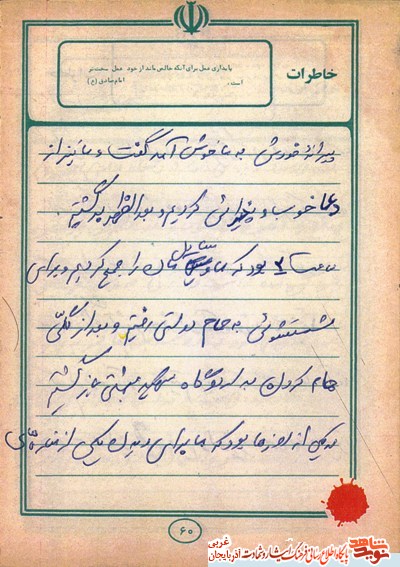 خاطرات
پایداری عمل برای آنکه خالص ماند از خود عمل سخت‌تر
است.
امام صادق (ع)
به ما خوش آمد گفت و ما نیز از
دعا خوب و پذیرائی کردیم و بعد الظهر برگشتیم
ساعت ۲ بود که ما وسایل مان را جمع کردیم و برای
شستشوئی به حمام دولتی رفتیم و بعد از کلی
حمام کردن به اردوگاه شهید بهشتی باز گشتیم
یکی از روزها بود که ما برای دیدن یکی از
۶۰
نوید شاهد
پایگاه اطلاع رسانی فرهنگ ایثار و شهادت آذربایجان غربی